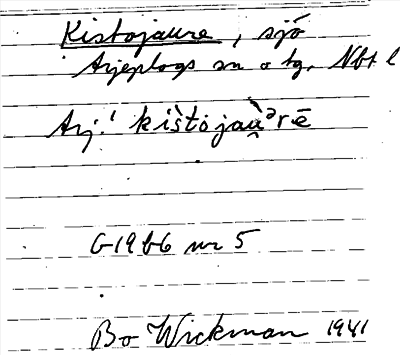 Kistojaure, sjö
Arjeplogs sn o tg, Nbt. l
Arj.
G1966 nr 5
Bo Wickman 1941